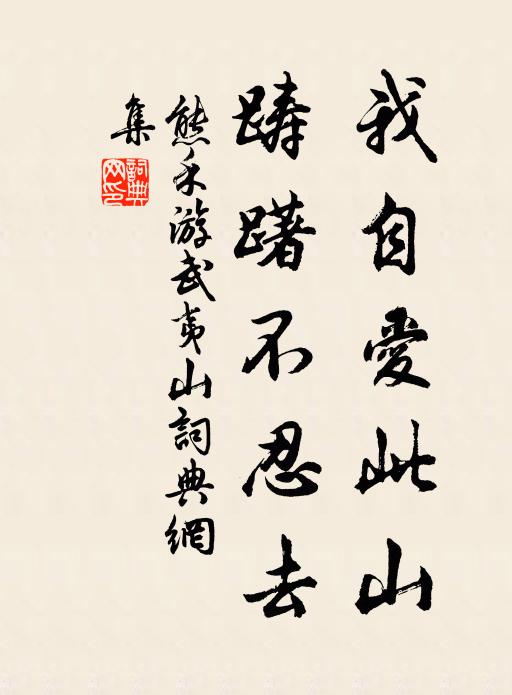 我自愛此山
躊躇不忍去
熊禾游武夷山詞典網
集
詞典網印